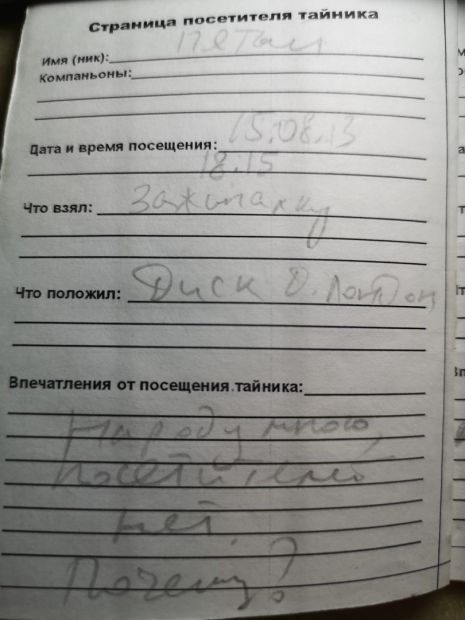 Страница посетителя тайника
Имя (ник):
Компаньоны:
Дата и время посещения: 15.08.13
18.15
Что взял: Зажигалку
Что положил: Диск D. Лондон
Впечатления от посещения тайника:
Народу много,
посетителей
нет.
Почему?